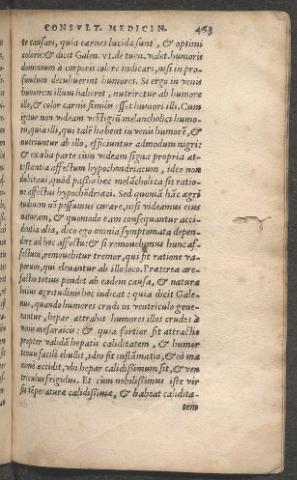 CONSVLT. MEDICIN. 463
te causari, quia carnes lucidæ sunt, & optimi
coloris: & dicit Galen. vi. de tuen. valet. humoris
dominium à corporis colore indicari, nisi in pro-
fundum decubuerint humores. Si ergo in venis
humorem illum haberet, nutriretur ab humore
illo, & color carnis similis esset humori illi. Cum
igitur non videam vestigiū melancholici humo-
ris, quia illi, qui talē habent in venis humorē, &
nutriuntur ab illo, efficiuntur admodum nigri:
& ex alia parte cùm videam signa propria at-
testantia affectum hypochondriacum, ideo non
dubitaui, quòd passio hæc melācholica sit ratio-
ne affectus hypochōdriaci. Sed quoniā hāc ægri
tudinem nō possumus curare, nisi videamus eius
naturam, & quomodo eam consequantur acci-
dentia alia, dico ego omnia symptomata depen-
dere ab hoc affectu: & si remouebimus hunc af-
fectum, remouebitur tremor, qui fit ratione va-
porum, qui eleuantur ab illo loco. Præterea are-
factio totius pendet ab eadem causa, & natura
huius ægritudinis hoc indicat: quia dicit Gale-
nus, quando humores crudi in ventriculo gene-
rantur, hepar attrahit humores illos crudos à
venis mesaraicis: & quia fortior fit attractio
propter validam hepatis caliditatem, & humor
tenuis facilè ebullit, ideo fit inflāmatio, & eò ma
ximè accidit, vbi hepar calidissimum sit, & ven
triculus frigidus. Et cùm nobilissimus iste vir
sit tēperaturæ calidissimæ, & habeat calidita-
tem